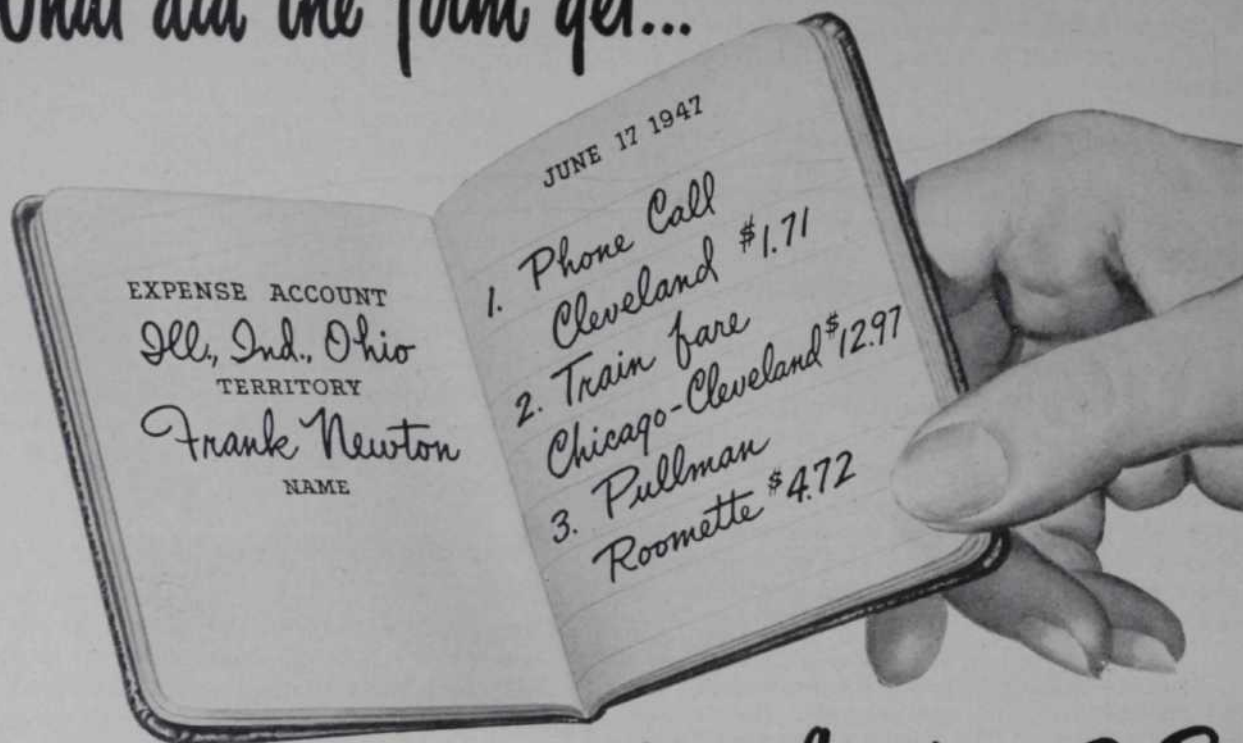 What did the firm get...
EXPENSE ACCOUNT
Ill., Ind., Ohio
TERRITORY
Frank Newton
NAME
JUNE 17 1947
1. Phone Call
Cleveland $1.71
2. Train fare
Chicago-Cleveland $12.97
3. Pullman
Roomette $4.72